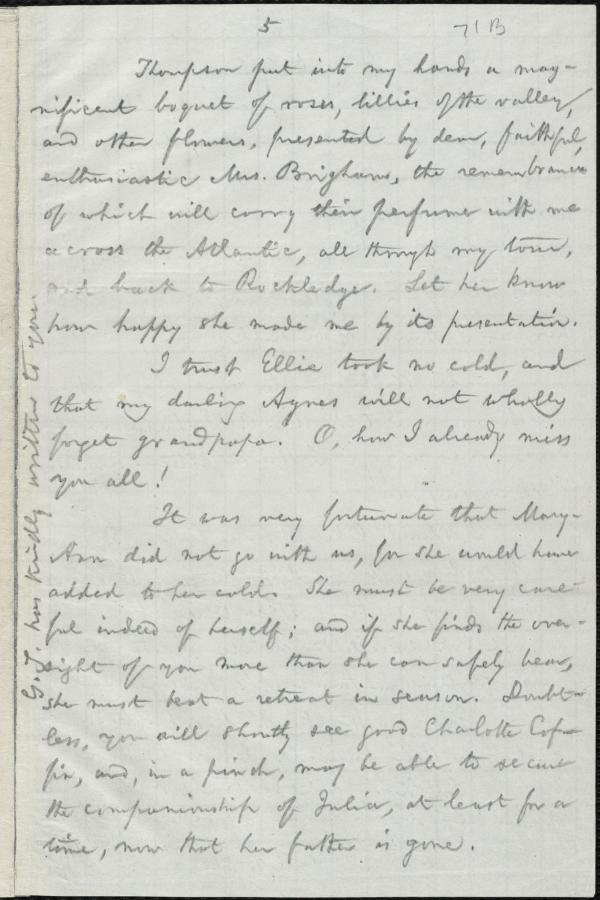 5
71 B
Thompson put into my hands a mag-
nificent boquet of roses, lillies of the valley,
and other flowers, presented by dear, faithful,
enthusiastic Mrs. Brigham, the remembrance
of which will carry their perfume with me
across the Atlantic, all through my tour,
and back to Rockledge. Let her know
how happy she made me by its presentation.
I trust Ellie took no cold, and
that my darling Agnes will not wholly
forget grandpapa. O, how I already miss
you all!
It was very fortunate that Mary-
Ann did not go with us, for she would have
added to her cold. She must be very care-
ful indeed of herself; and if she finds the over-
sight of you more than she can safely bear,
she must beat a retreat in season. Doubt-
less, you will shortly see good Charlotte Cof-
fin, and, in a pinch, may be able to secure
the companionship of Julia, at least for a
time, now that her father is gone.
G. T. has kindly written to you.